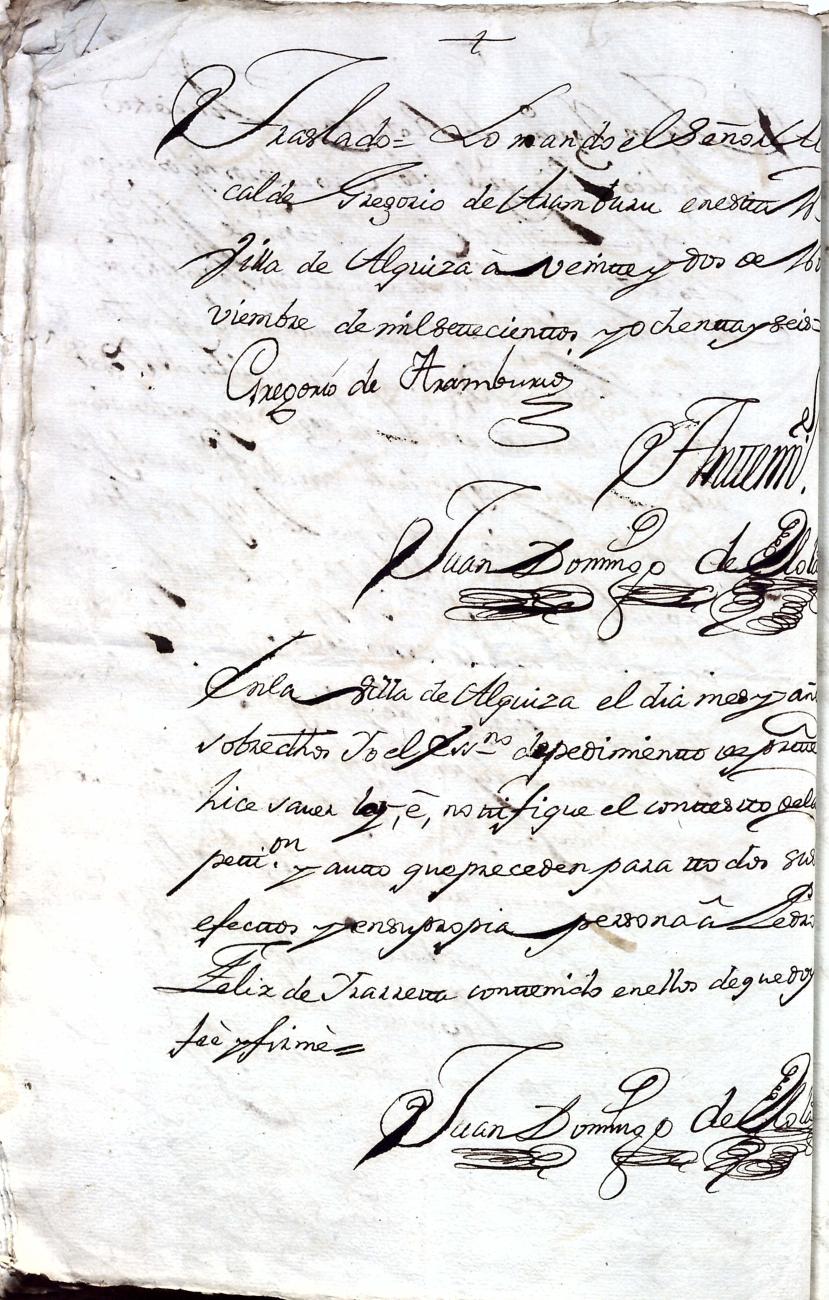 Traslado= Lo mando el Señor Al
calde Gregorio de Aramburu en esta
Villa de Alquiza â veintte y dos de No
viembre de mil settecienttos y ochentta y seis=
Gregorio de Aramburu
Antemi
Juan Domingo de
En la villa de Alquiza el dia mes y añ
sobredhos Yo el essno de pedimientto de partte
hice saver ley, ê, nottifique el conttestto del
petti.on y autto que preceden para ttodos sus
efecttos y en su propia persona â Pedro
Felix de Yrarretta conttenido en ellos de que doy
feè y firmè=
Juan Domingo de